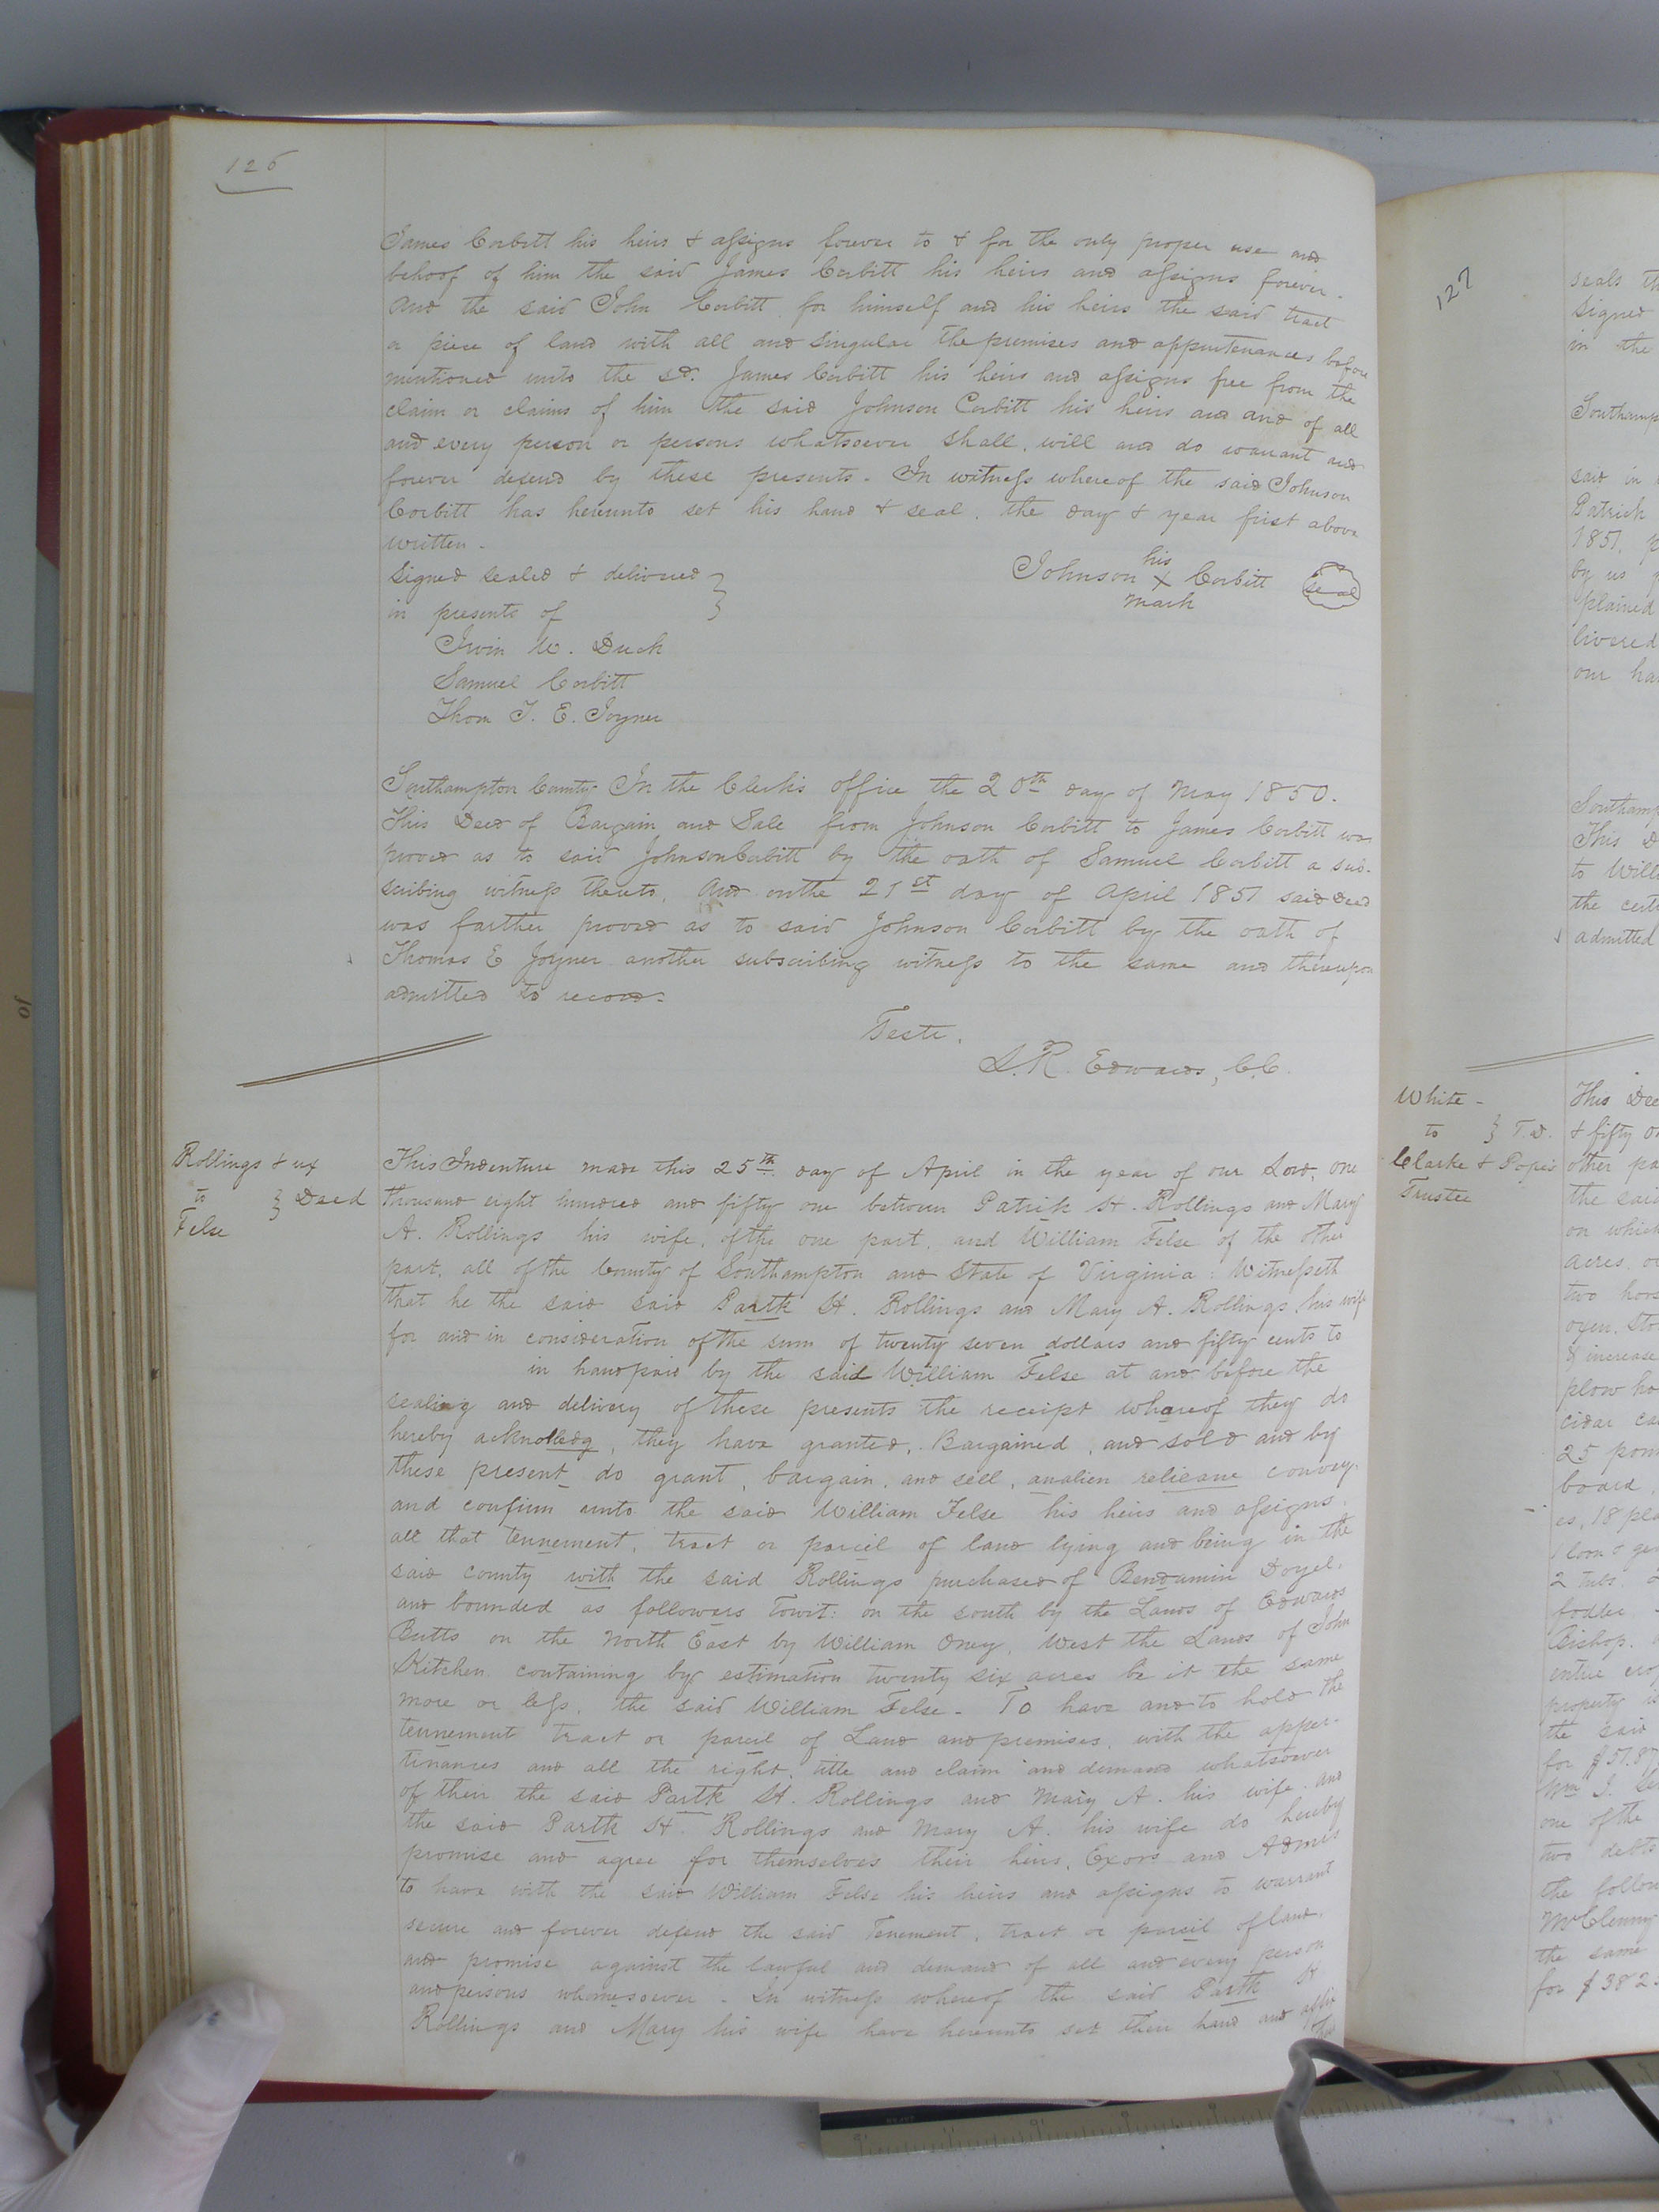 126
James Corbitt his heirs & assigns forever to & for the only proper use and
behoof of him the said James Corbitt his heirs and assigns forever.
And the said John Corbitt for himself and his heirs the said tract
or piece of land with all and singular the premises and appurtenances before
mentioned unto the sd. James Corbitt his heirs and assigns free from the
claim or claims of him the said Johnson Corbitt his heirs and and of all
and every person or persons whatsoever shall, will and do warrant and
forever defend by these presents. In witness whereof the said Johnson
Corbitt has hereunto set his hand & seal, the day & year first above
written.
Signed sealed & delivered }
in presents of
his
Johnson X Corbitt Seal
mark
Irvin W. Duck
Samuel Corbitt
Thom T. E. Joyner
Southampton County In the Clerks office the 20th day of May 1850.
This Deed of Bargain and Sale from Johnson Corbitt to James Corbitt was
proved as to said Johnson Corbitt by the oath of Samuel Corbitt a sub-
scribing witness thereto, And on the 21st day of April 1851 said Deed
was farther proved as to said Johnson Corbitt by the oath of
Thomas E Joyner another subscribing witness to the same and thereupon
admitted to record.
Teste,
L.R. Edwards, C.C.
Rollings & ux
to } Deed
Felse
This Indenture made this 25th day of April in the year of our Lord, one
thousand eight hundred and fifty one between Patrik H. Rollings and Mary
A. Rollings his wife, of the one part, and William Felse of the other
part, all of the County of Southampton and State of Virginia: Witnesseth
that he the said said Partk H. Rollings and Mary A. Rollings his wife
for and in consideration of the sum of twenty seven dollars and fifty cents to
in hand paid by the said William Felse at and before the
sealing and delivery of these presents the receipt whareof they do
hereby acknolledg, they have granted, Bargained, and sold and by
these present do grant, bargain, and sell, analien relieane convey
and confirm unto the said William Felse his heirs and assigns,
all that tennement, tract or parcil of land lying and being in the
said county with the said Rollings purchased of Bendamin Doyel.
and bounded as followers Towit: on the south by the Lands of Edwards
Butts on the North East by William Oney, West the Lands of John
Kitchen containing by estimation twenty six acres be it the same
more or less, the said William Felse. To have and to hold the
tennement tract or parcil of Land and premises, with the apper-
tinances and all the right, title and claim and demand whatsoever
of their the said Partk H. Rollings and Mary A. his wife. and
the said Partk H. Rollings and Mary A. his wife do hereby
promise and agree for themselves their heirs, Exors and Admrs
to have with the said William Felse his heirs and assigns to warrant
secure and forever defend the said Tenement, tract or parcil of land,
and promise against the lawful and demand of all and every person
and persons whomesoever. In witness whereof the said Partk H
Rollings and Mary his wife have hereunto set their hand and affix
127
seals th
Signed
in the
Southamp
said in
Patrick
1851, p
by us
plained
livered
our ha
Southamp
This D
to Will
the certi
admitted
White -
to } T.D.
Clarke & Pope's
Trustee
This Dee
& fifty o
other pa
the said
on which
acres, o
two hors
oxen, Sto
& increase
plow ho
cidar ca
25 pou
board,
es, 18 pla
2 tubs,
fodder
Bishop,
entire cro
property is
the said
for $51.87
one of the
two debts
the follow
McClenny
the same
for $382.